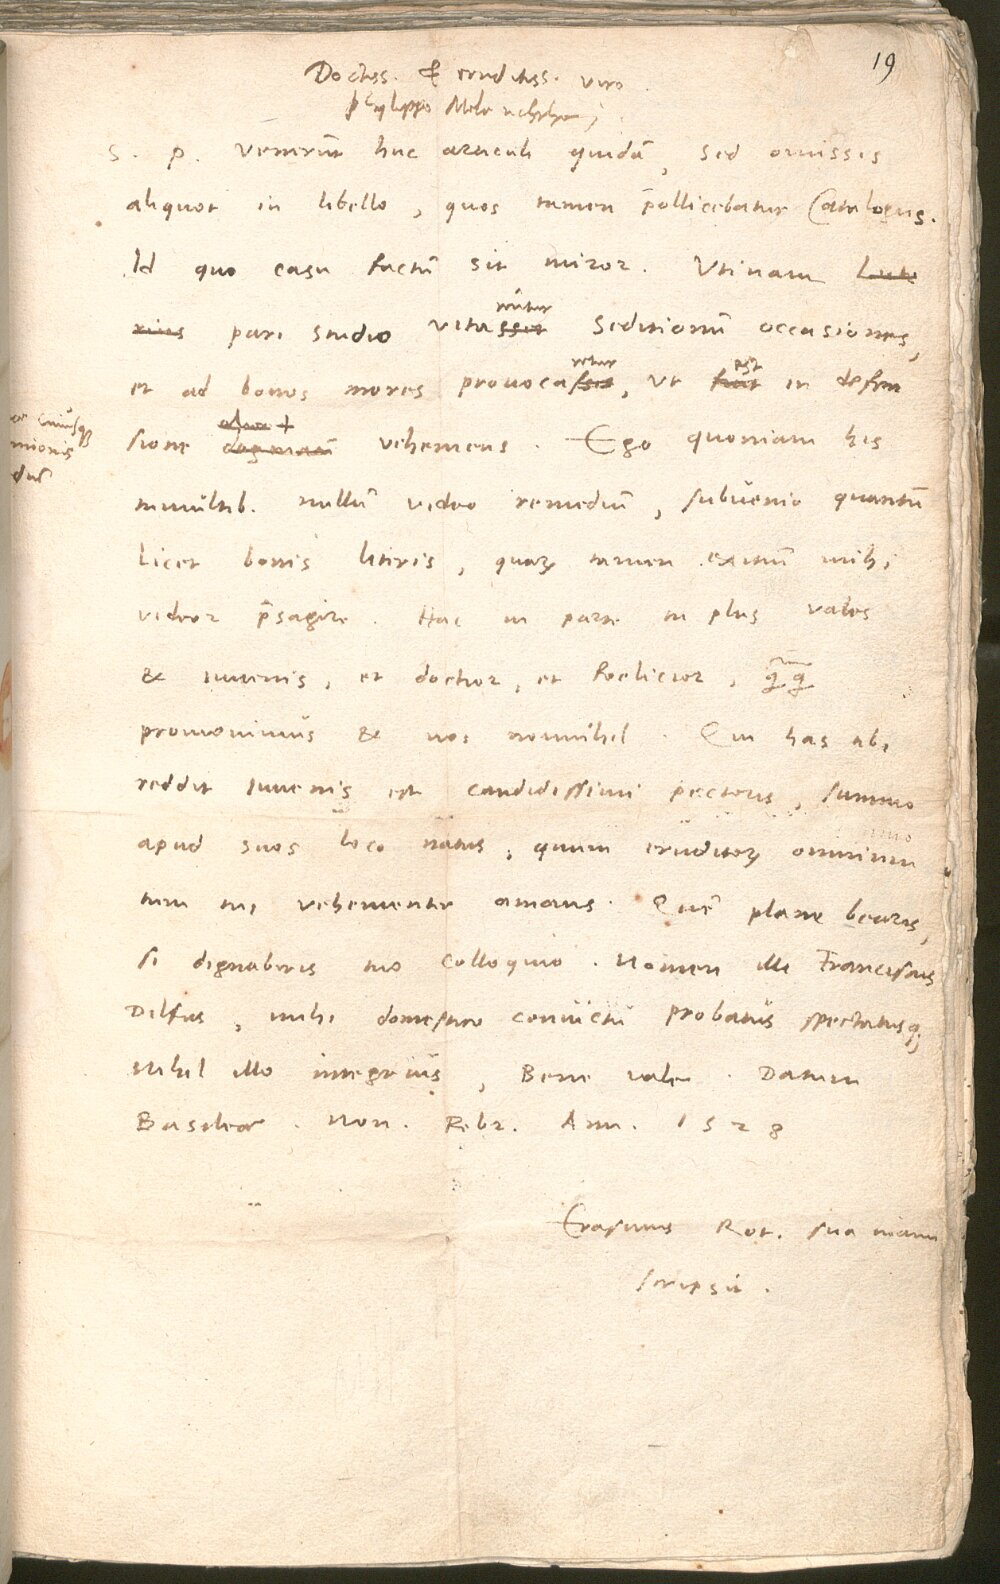 19
Doctiss. & eruditiss. viro
philippo Melanchthoni
S. p. Venerūt huc articuli quidā, sed omissis
aliquot in libello, quos tamen p̄ollicebatur Catalogus.
Id quo casu factū sit miror. Vtinam Lute
rius pari studio vitasset
mitur
seditionū occasiones,
et ad bonos mores provocasset, ut fuit in defen
retur est
sione dogmatū vehemens. Ego quoniam his
cuiusq
tumultib. nullū video remediū, subvenio quantū
licet bonis literis, quarꝫ tamen exitiū mihi
videor p̄sagire. Hac in parte tu plus vales
& iuuenis, et doctior, et foelicior, q̄q̄
promouimus & nos nonnihil. Qui has tibi
reddit iuuenis est candidissimi pectoris, summo
apud suos loco natus, quum eruditorꝫ omnium
tum tui vehementer amans. Quē plane bearis,
si dignaberis tuo colloquio. Nomen illi Franciscus
Dilfus, mihi domestico conuictu probatus spectatusq;
Nihil illo integrius, Bene vale. Datum
Basileae. Non. Febr. Ann. 1528
Erasmus Rot. sua manu
scripsit.